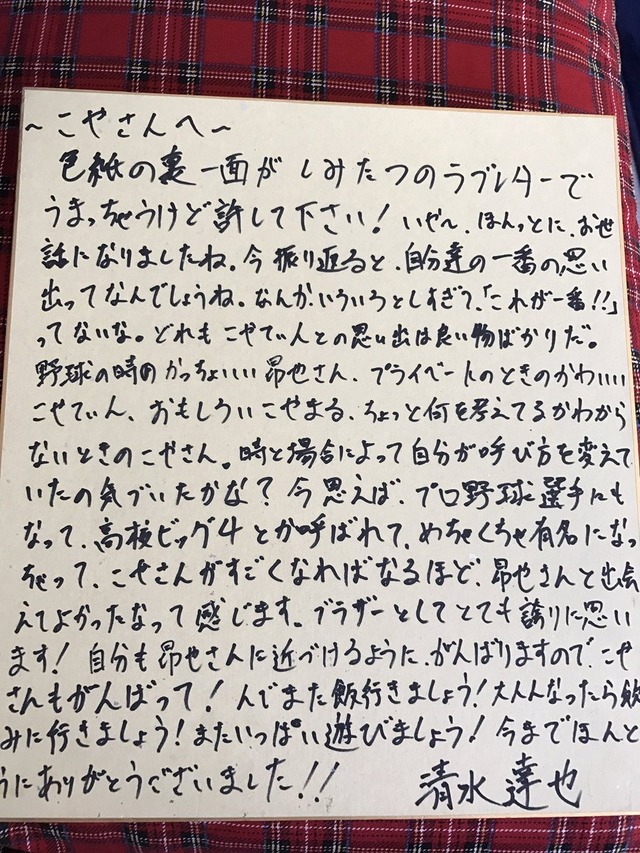 ~こやさんへ~
色紙の裏一面がしみたつのラブレターで
うまっちゃうけど許して下さい！いや〜、ほんっとに、お世
話になりましたね。今振り返ると、自分達の一番の思い
出ってなんでしょうね。なんかいろいろとしすぎて、「これが一番!!」
ってないな。どれもこやてぃんとの思い出は良い物ばかりだ。
野球の時のかっちょいい昂也さん、プライベートのときのかわいい
こやてぃん、おもしろいこやまる、ちょっと何を考えてるかわから
ないときのこやさん。時と場合によって自分が呼び方を変えて
いたの気づいたかな？今思えば、プロ野球選手にも
なって、高校ビッグ4とか呼ばれて、めちゃくちゃ有名になっ
ちゃって、こやさんがすごくなればなるほど、昂也さんと出会
えてよかったなって感じます。ブラザーとしてとても誇りに思い
ます！自分も昂也さんに近づけるように、がんばりますので、こや
さんもがんばって！んでまた飯行きましょう！大人んなったら飲
みに行きましょう！またいっぱい遊びましょう！今までほんと
うにありがとうございました!! 清水達也